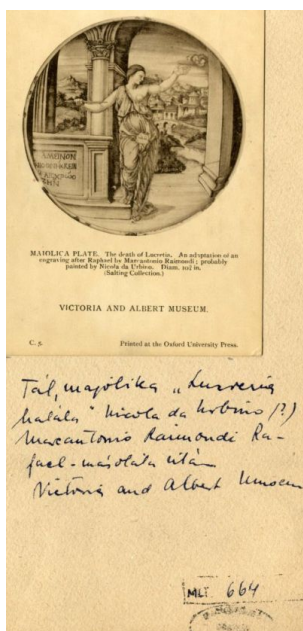 MAIOLICA PLATE. The death of Lucretia. An adaptation of an
engraving after Raphael by Marcantonio Raimondi; probably
painted by Nicola da Urbino. Diam. 10½ in.
(Salting Collection.)
VICTORIA AND ALBERT MUSEUM.
C. 5. Printed at the Oxford University Press.
Tál, majolika „Lucrecia
halála" Nicola da Urbino /?)
Marcantonio Raimondi Ra-
fael-másolata után
Victoria and Albert Museum
MLT 664